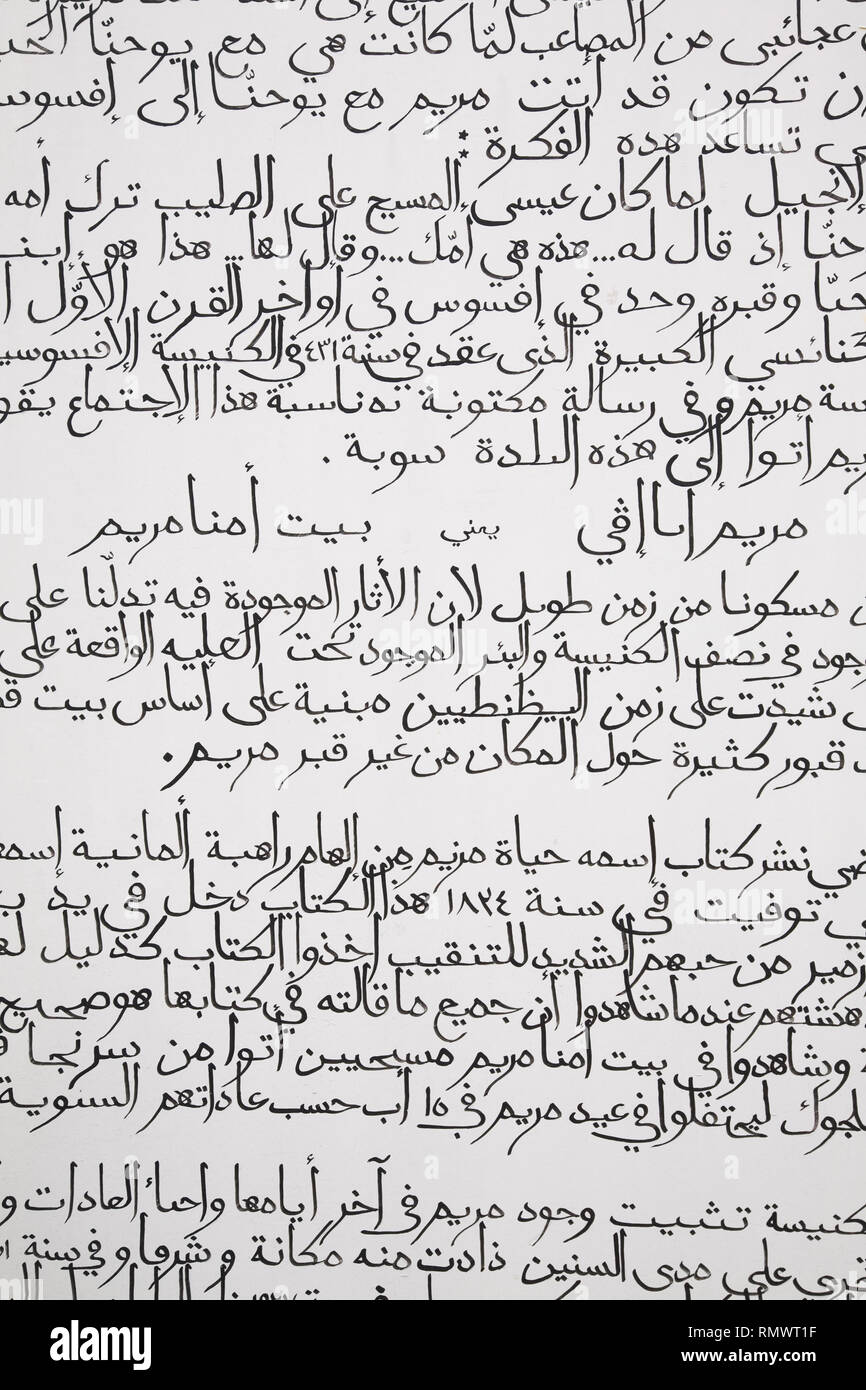 عجائبى من المصاعب لمّا كانت هي مع يوحنّا
ن تكون قد أتت مريم مع يوحنّا إلى إفسوس
ى تساعد هده الفكرة :
الإنجيل لما كان عيسى المسيح على الصليب ترك أمه
حنّا إذ قال له...هذه هي أمّك...وقال لها... هذا هو ابنـ
حنّا وقبره وحد في إفسوس في أواخر القرن الأوّل ا
كنائسي الكبيرة الذى عقد في سنة ٤٣١ في الكنيسة الإفسوسيـ
سة مريم و في رسالة مكتوبة بمناسبة هذا الإجتماع يقو
ريم أتوا إلى هذه البلدة سوية .
مريم انا إڤي يعني بيت أمنا مريم
ن مسكونا من زمن طويل لأن الأثار الموجودة فيه تدلّنا على
جود في نصف الكنيسة والبئر الموجود تحت العليه الواقعة على
شيدت على زمن البيظنطيين مبنية على أساس بيت قد
قبور كثيرة حول المكان من غير قبر مريم.
ضي نشر كتاب إسمه حياة مريم من إلهام راهبة ألمانية إسمها
ي توفيت في سنة ١٨٢٤ هذا الكتاب دخل في يد ب
زمير من حبهم الشديد للتنقيب أخذوا الكتاب كدليل لهـ
هشتهم عندما شاهدوا أن جميع ما قالته في كتابها هو صحيح
ة وشاهدوا في بيت أمنا مريم مسيحيين أتوا من سرنجا
لجوك ليحتفلوا في عيد مريم في ١٥ أب حسب عاداتهم السنوية
كنيسة تثبيت وجود مريم في آخر أيامها واحياء العادات و
خرى على مدى السنين ذادت منه مكانة و شرفا و في سنة
alamy
Image ID: RMWT1F
www.alamy.com